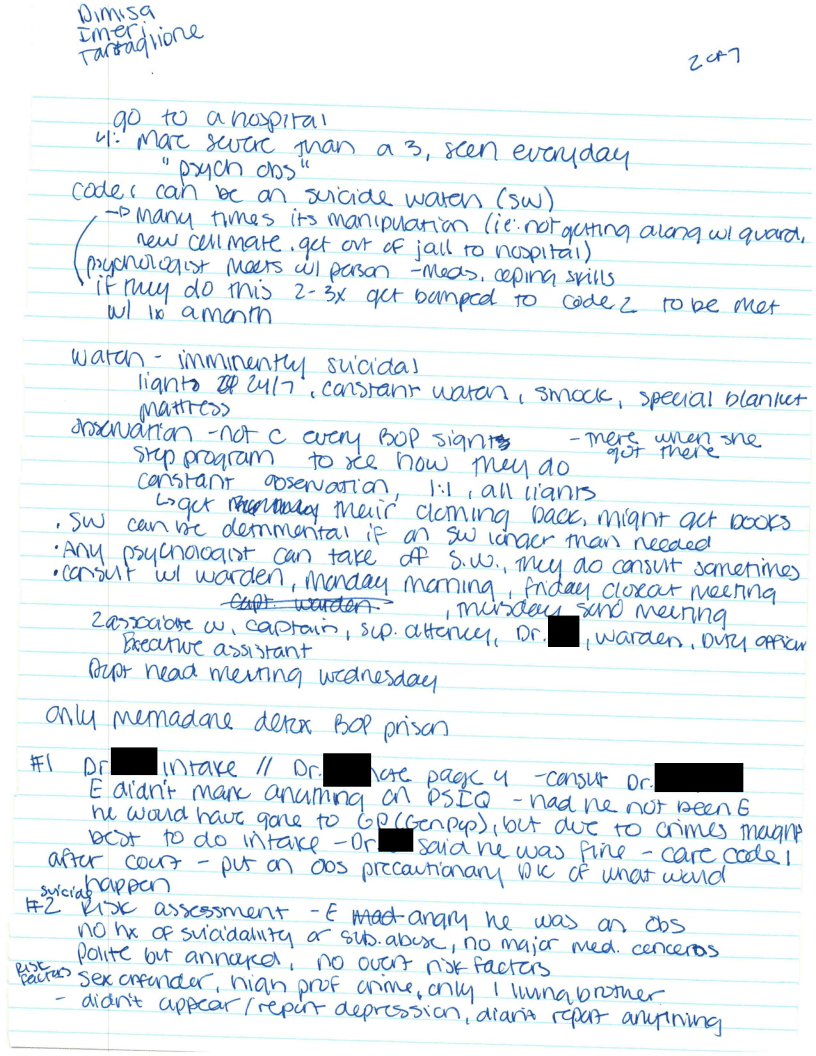 Dimisa
Imeri
Tartaglione
2 of 7
go to a hospital
4: more severe than a 3, seen everyday
"psych obs"
code 1 can be on suicide watch (SW)
→ many times its manipulation (ie: not getting along w/ guard,
new cellmate, get out of jail to hospital)
psychologist meets w/ person - meds, coping skills
if they do this 2-3x get bumped to code 2 to be met
w/ 1x a month
watch - imminently suicidal
lights 24/7, constant watch, smock, special blanket
mattress
observation - not C every BOP sight - there when she
got there
step program to see how they do
constant observation, 1:1, all lights
↳ get their clothing back, might get books
· SW can be detrimental if on SW longer than needed
· Any psychologist can take off S.W., they do consult sometimes
· consult w/ warden, monday morning, friday closeout meeting
capt. warden , thursday SHU meeting
2 associate w, captain, sup. attorney, Dr. , warden, Duty officer
Executive assistant
Dept head meeting wednesday
only methadone detox BOP prison
#1 Dr intake // Dr. note page 4 - consult Dr.
E didn't mark anything on PSIQ - had he not been E
he would have gone to GP (GenPop), but due to crimes thought
best to do intake - Dr said he was fine - care code 1
after court - put on obs precautionary b/c of what would
happen
#2 suicide Risk assessment - E mad angry he was on obs
no hx of suicidality or sub. abuse, no major med. concerns
Polite but annoyed, no overt risk factors
Risk factors sex offender, high prof crime, only 1 living brother
- didn't appear / report depression, didn't report anything